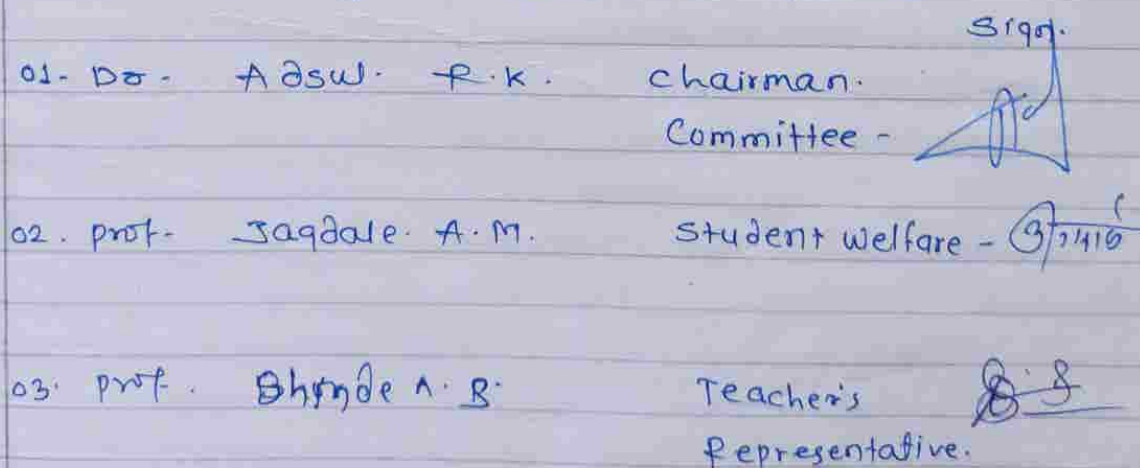 Sign.
01- Dr. Adsul. R.K. Chairman.
Committee -
02. prof- Jagdale. A.M. Student welfare -
03. prof. A. B. Teacher's
Representative.